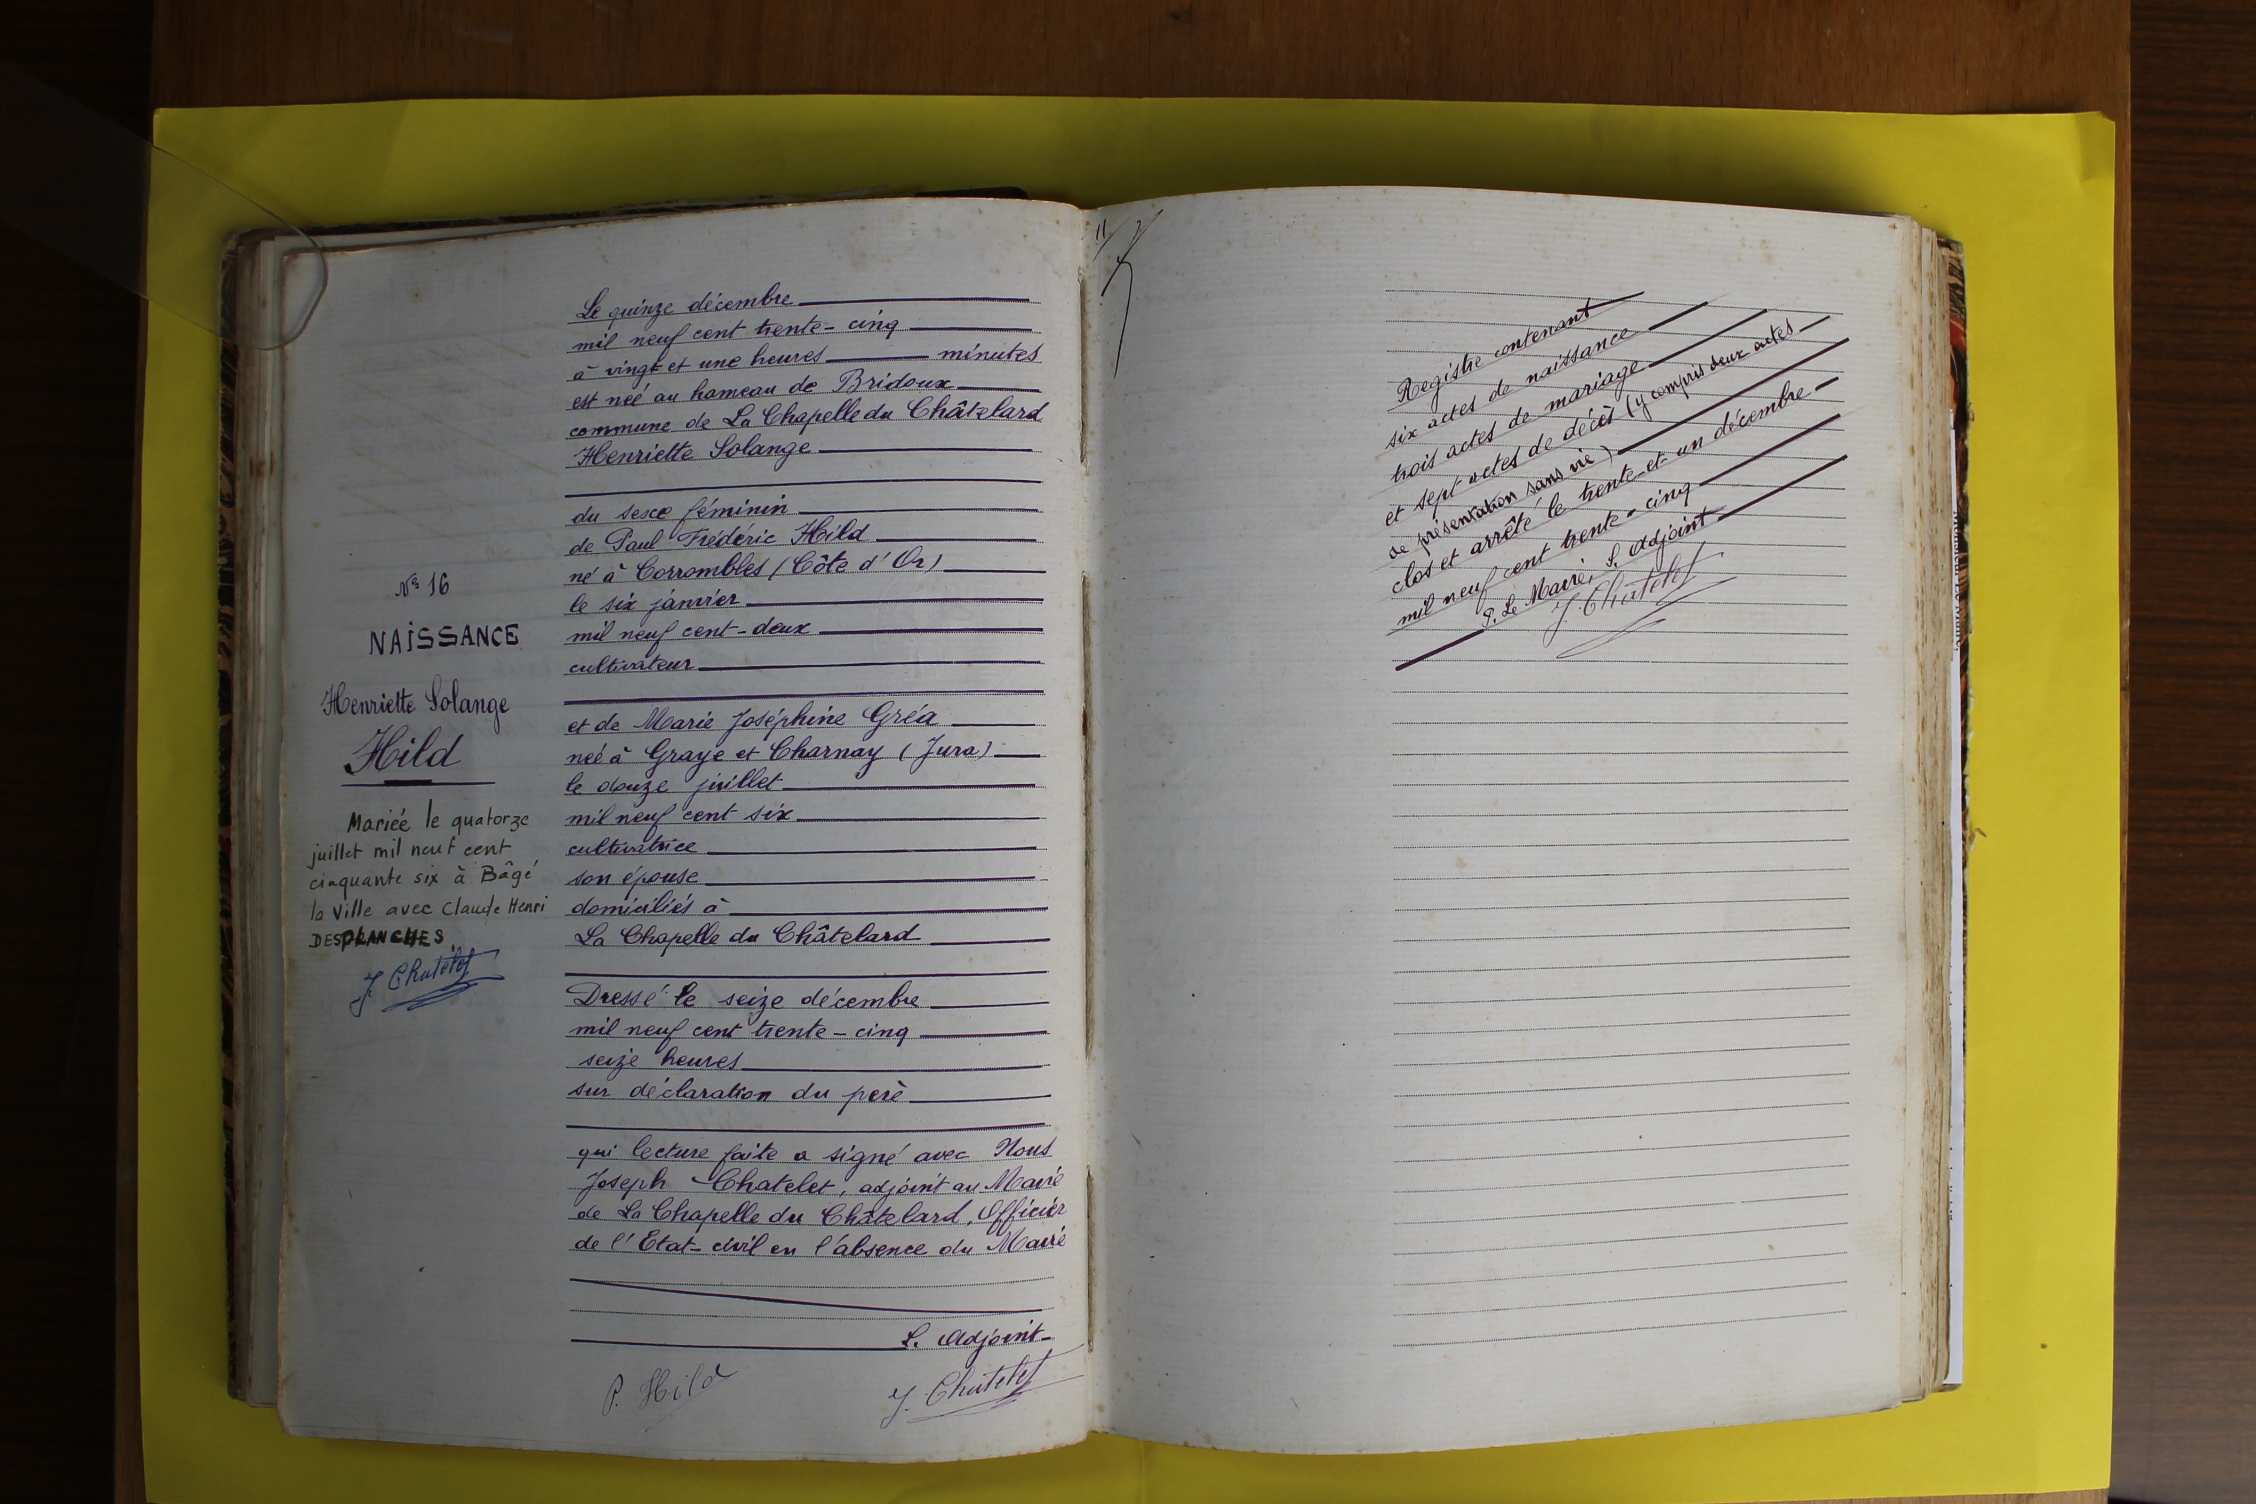 N° 16
NAISSANCE
Henriette Solange
Hild
Mariée le quatorze
juillet mil neuf cent
cinquante six à Bâgé
la Ville avec Claude Henri
DESPLANCHES.
J. Chatelet
Le quinze décembre
mil neuf cent trente-cinq
à vingt et une heures minutes
est née au hameau de Bridoux
commune de La Chapelle du Châtelard
Henriette Solange
du sexe féminin
de Paul Frédéric Hild
né à Corrombles (Côte d'Or)
le six janvier
mil neuf cent-deux
cultivateur
et de Marie Joséphine Gréa
née à Graye et Charnay (Jura)
le douze juillet
mil neuf cent six
cultivatrice
son épouse
domiciliés à
La Chapelle du Châtelard
Dressé le seize décembre
mil neuf cent trente-cinq
seize heures
sur déclaration du père
qui lecture faite a signé avec Nous
Joseph Chatelet, adjoint au Maire
de La Chapelle du Châtelard, Officier
de l'Etat-civil en l'absence du Maire
L. Adjoint
P. Hild
J. Chatelet
11
Registre contenant
six actes de naissance
trois actes de mariage
et sept actes de décès (y compris deux actes
de présentation sans vie)
clos et arrêté le trente-et-un décembre
mil neuf cent trente-cinq
P. Le Maire, L. Adjoint
J. Chatelet